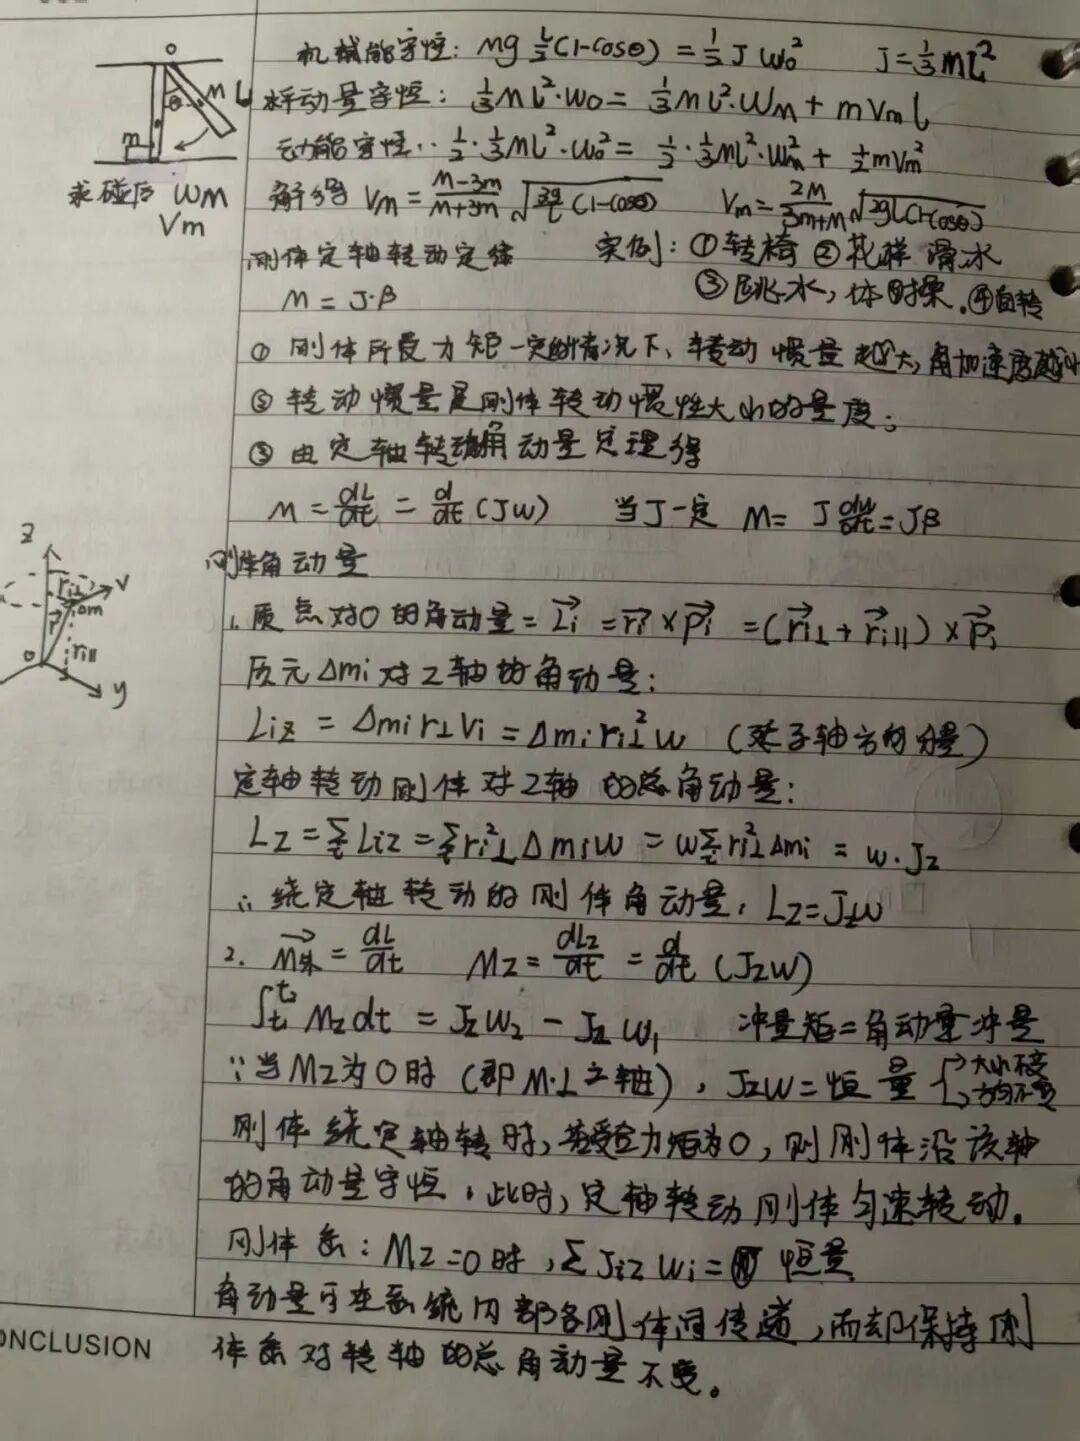 机械能守恒: Mg L/2 (1-cosθ) = 1/2 J ω₀² J = 1/3 ML²
动量守恒: 1/3 ML²·ω₀ = 1/3 ML²·ωM + mVmL
动能守恒: 1/2·1/3 ML²·ω₀² = 1/2·1/3 ML²·ωM² + 1/2 mVm²
求碰后 ωM
Vm
解得 Vm = (M-3m)/(M+3m) √(3g/L (1-cosθ)) Vm = 2M/(3m+M) √(3gL(1-cosθ))
刚体定轴转动定律 实例: ①转椅 ②花样滑冰
M = J·β ③跳水, 体操. ④
① 刚体所受力矩一定的情况下, 转动惯量越大, 角加速度越小
② 转动惯量是刚体转动惯性大小的量度;
③ 由定轴转动角动量定理得
M = dL/dt = d/dt (Jω) 当J一定 M = J dω/dt = Jβ
刚体角动量
1. 质点对O的角动量 = L⃗i = r⃗i × P⃗i = (r⃗i⊥ + r⃗i∥) × P⃗i
质元Δmi对Z轴的角动量:
Liz = Δmi r⊥Vi = Δmi ri⊥² ω
定轴转动刚体对Z轴的总角动量:
LZ = ΣLiz = Σri⊥² Δmi ω = ωΣri⊥² Δmi = ω·Jz
∴ 绕定轴转动的刚体角动量: LZ = Jzω
2. M⃗外 = dL/dt MZ = dLz/dt = d/dt (Jzω)
∫t₁^t₂ Mz dt = Jzω₂ - Jzω₁ 冲量矩=角动量冲量
∵当MZ为0时 (即M⊥Z轴), JZω = 恒量 { 大小不变 方向不变
刚体绕定轴转时, 若受合力矩为0, 则刚体沿该轴
的角动量守恒. 此时, 定轴转动刚体匀速转动.
刚体系: MZ=0时, ΣJiz ωi = 恒量
角动量可在系统内部各刚体间传递, 而却保持刚
体系对转轴的总角动量不变。
z
ri⊥
v
Δm
ri∥
o
y
O
θ
M
L
m
ONCLUSION